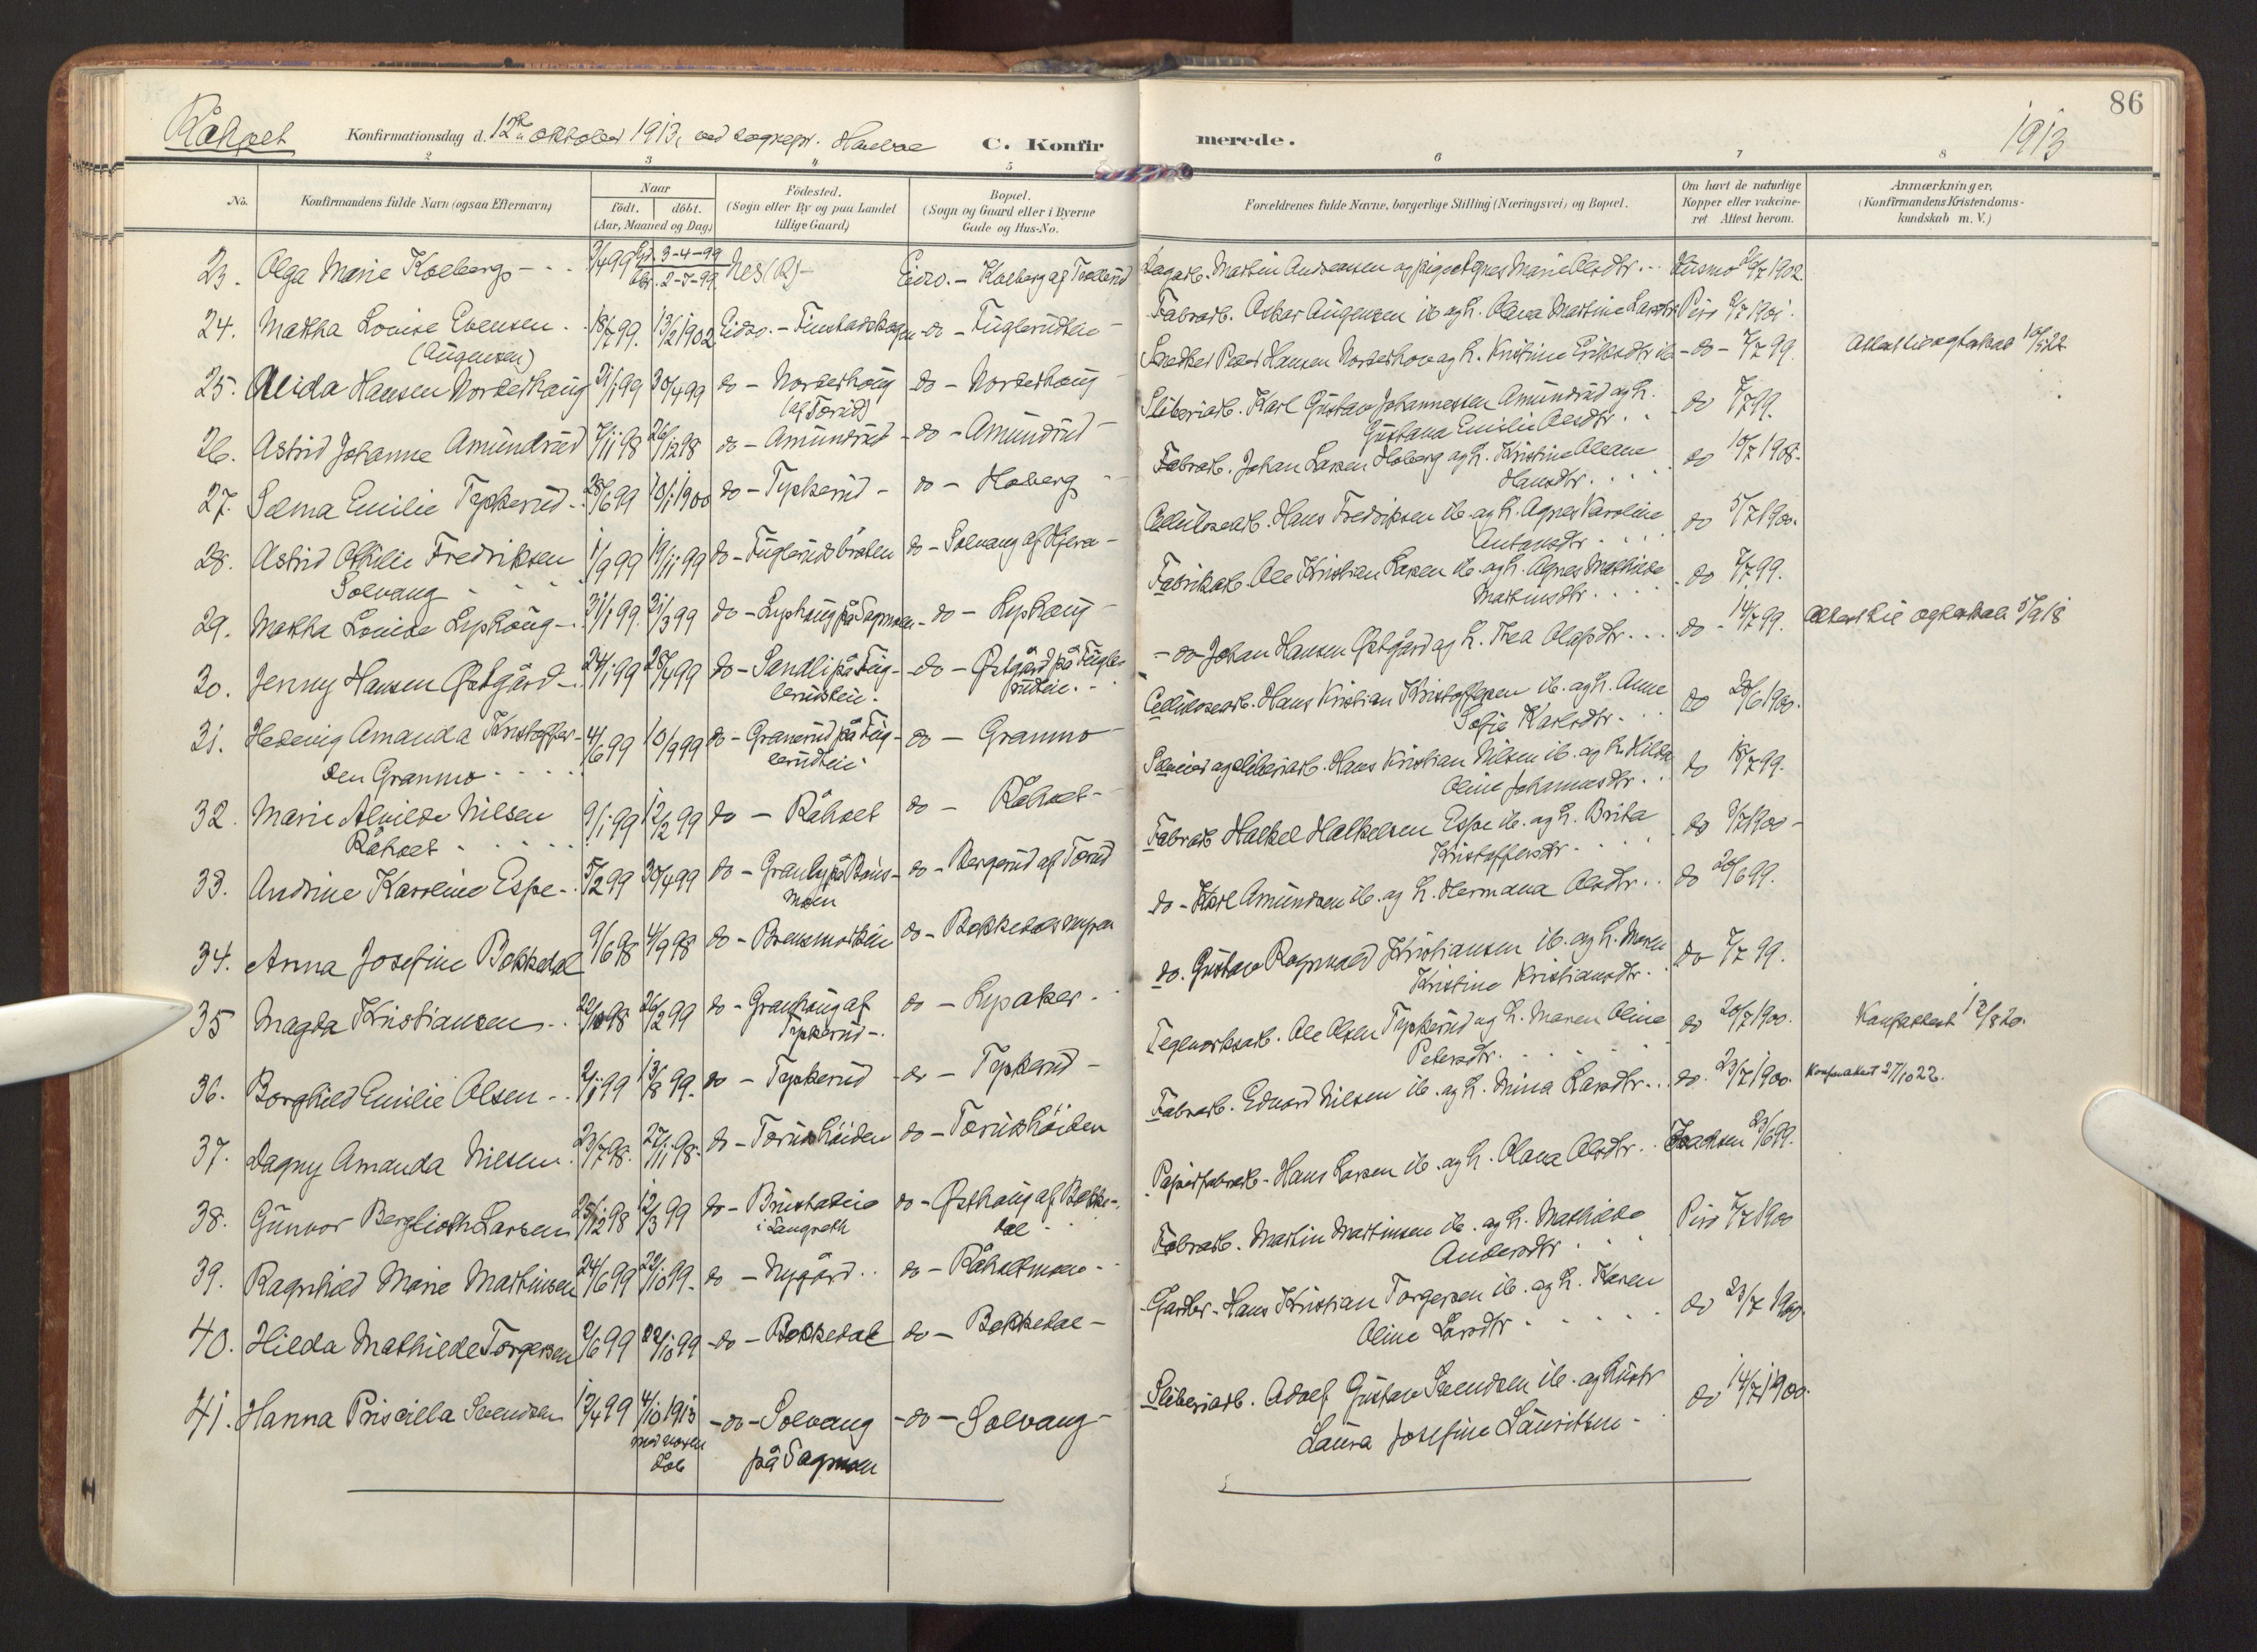 86
Råholt Konfirmationsdag d. 12te oktober 1913, ved sognepr. C. Konfirmerede. 1913
2 3 4 5 6 7 8
No. Konfirmandens fulde Navn (ogsaa Efternavn) Naar Födested. Bopæl. Forældrenes fulde Navne, borgerlige Stilling (Næringsvei) og Bopæl. Om havt de naturlige Anmærkninger,
födt. döbt. (Sogn eller By og paa Landet (Sogn og Gaard eller i Byerne Kopper eller vakcine- (Konfirmandens Kristendoms-
(Aar, Maaned og Dag) tillige Gaard) Gade og Hus-No. ret Attest herom. kundskab m. V.)
23. Olga Marie Kolberg 3/4 99 3-4-99 2-7-99 Nes (R) Eidsv. - Kolberg af Martin Andreassen og pige Agnes Marie Olsdtr. Husmo 1902
24. Martha Louise Evensen 18/7 99. 13/2 1902 Eidsv. - do - Fabrarb. Oskar Augensen ib og h. Olava Martine Larsdtr Piro 2/7 1901.
(Augensen)
25. Alida Hansen Norderhaug 31/1 99 30/4 99 do - Norderhoug do - Norderhoug Snedker Peder Hansen Norderhov og h. Kristine Eriksdtr ib - do - 7/7 99.
(af Torud)
26. Astrid Johanne Amundrud 7/11 98 26/12 98 do - Amundrud - do - Amundrud Sliberiarb. Karl Gustav Johannessen Amundrud og h. do 7/7 99.
Gustava Emilie Olsdtr.
27. Selma Emilie Typkerud 28/6 99 10/1 1900 do - Typkerud - do - Hoberg Fabrarb. Johan Larsen Hoberg og h. Kristine Oleane do 10/7 1908.
Hansdtr.
28. Astrid Othilie Fredriksen 1/9 99 19/11 99 do - Fuglerudsbråten do - Solvang af Hjera Cellulosearb. Hans Fredriksen ib. og h. Agnes Karoline do 5/7 1900.
Solvang Antonsdtr.
29. Martha Louise Lyshoug 31/1 99. 31/3 99 do - Lyshoug på Sagmoen - do - Lyshoug Fabrikarb. Ole Kristian Larsen ib. og h. Agnes Mathilde do 7/7 99.
Martinsdtr.
30. Jenny Hansen Østgård 24/1 99 28/4 99 do - Sandli på Fug- - do - Østgård på Fugle- - do - Johan Hansen Østgård og h. Thea Olafsdtr. do - 14/7 99.
lerudteie. rudteie.
31. Hedevig Amanda Kristoffer- 4/6 99 10/9 99 do - Granerud på Fug- do - Granmo Cellulosearb. Hans Kristian Kristoffersen ib. og h. Anne do 28/6 1900.
sen Granmo lerudteie Sofie Karlsdtr.
32. Marie Alvilde Nilsen 9/1 99 12/2 99 do - Råholt do - Råholt og sliberiarb. Hans Kristian Nilsen ib. og h. Hilda do 18/7 99.
Råholt Oline Johannesdtr.
33. Andrine Karoline Espe 5/2 99 30/4 99 do - Granly på do - Bergerud af Torud Fabrarb Halkel Halkelsen Espe ib. og h. Brita do 9/7 1900 -
moen Kristoffersdtr.
34. Anna Josefine Bekkedal 9/6 98 4/9 98 do - do - do - Karl Amundsen ib. og h. Hermana Olsdtr. do 20/6 99.
35 Magda Kristiansen 26/2 99 do - Granhoug af do - Lysaker do. Gustav Ragnvald Kristiansen ib. og h. Maren do 7/7 99.
Typkerud - Kristine Kristiansdtr.
36. Borghild Emilie Olsen 13/8 99. do - Typkerud do - Typkerud - Teglverksarb. Ole Olsen Typkerud og h. Maren Oline do 20/7 1900. Konfattest 12/8 20.
Petersdtr.
37. Dagny Amanda Nilsen 23/7 98. 27/11 98. do - Torudshöiden do - Torudshöiden Fabrarb. Edvard Nilsen ib. og h. Mina Larsdtr. do. 23/7 1900. Konfattest 27/10 22.
38. Gunvor Berglioth Larsen 25/12 98 12/3 99 do - do - Østhoug af Bekke- Papirfabrarb - Hans Larsen ib. og h. Olava Olsdtr. Isachsen 29/6 99.
i Langseth dal
39. Ragnhild Marie Martinsen 24/6 99 22/10 99. do - Nygård do - Råholtmoen Fabrarb. Martin Martinsen ib. og h. Mathilde Piro 7/7 1900
Andersdtr
40. Hilda Mathilde Torgersen 2/6 99 22/10 99 - do - Bekkedal do - Bekkedal - Gaardbr. Hans Kristian Torgersen ib. og h. Karen do 23/7 1900.
Oline Larsdtr
41. Hanna Priscilla Svendsen 12/4 99 4/10 1913 - do - Solvang - do - Solvang Sliberiarb. Adolf Gustav Svendsen ib. og hustr do 14/7 1900.
på Sagmoen Laura Josefine Lauritsen -
dåb